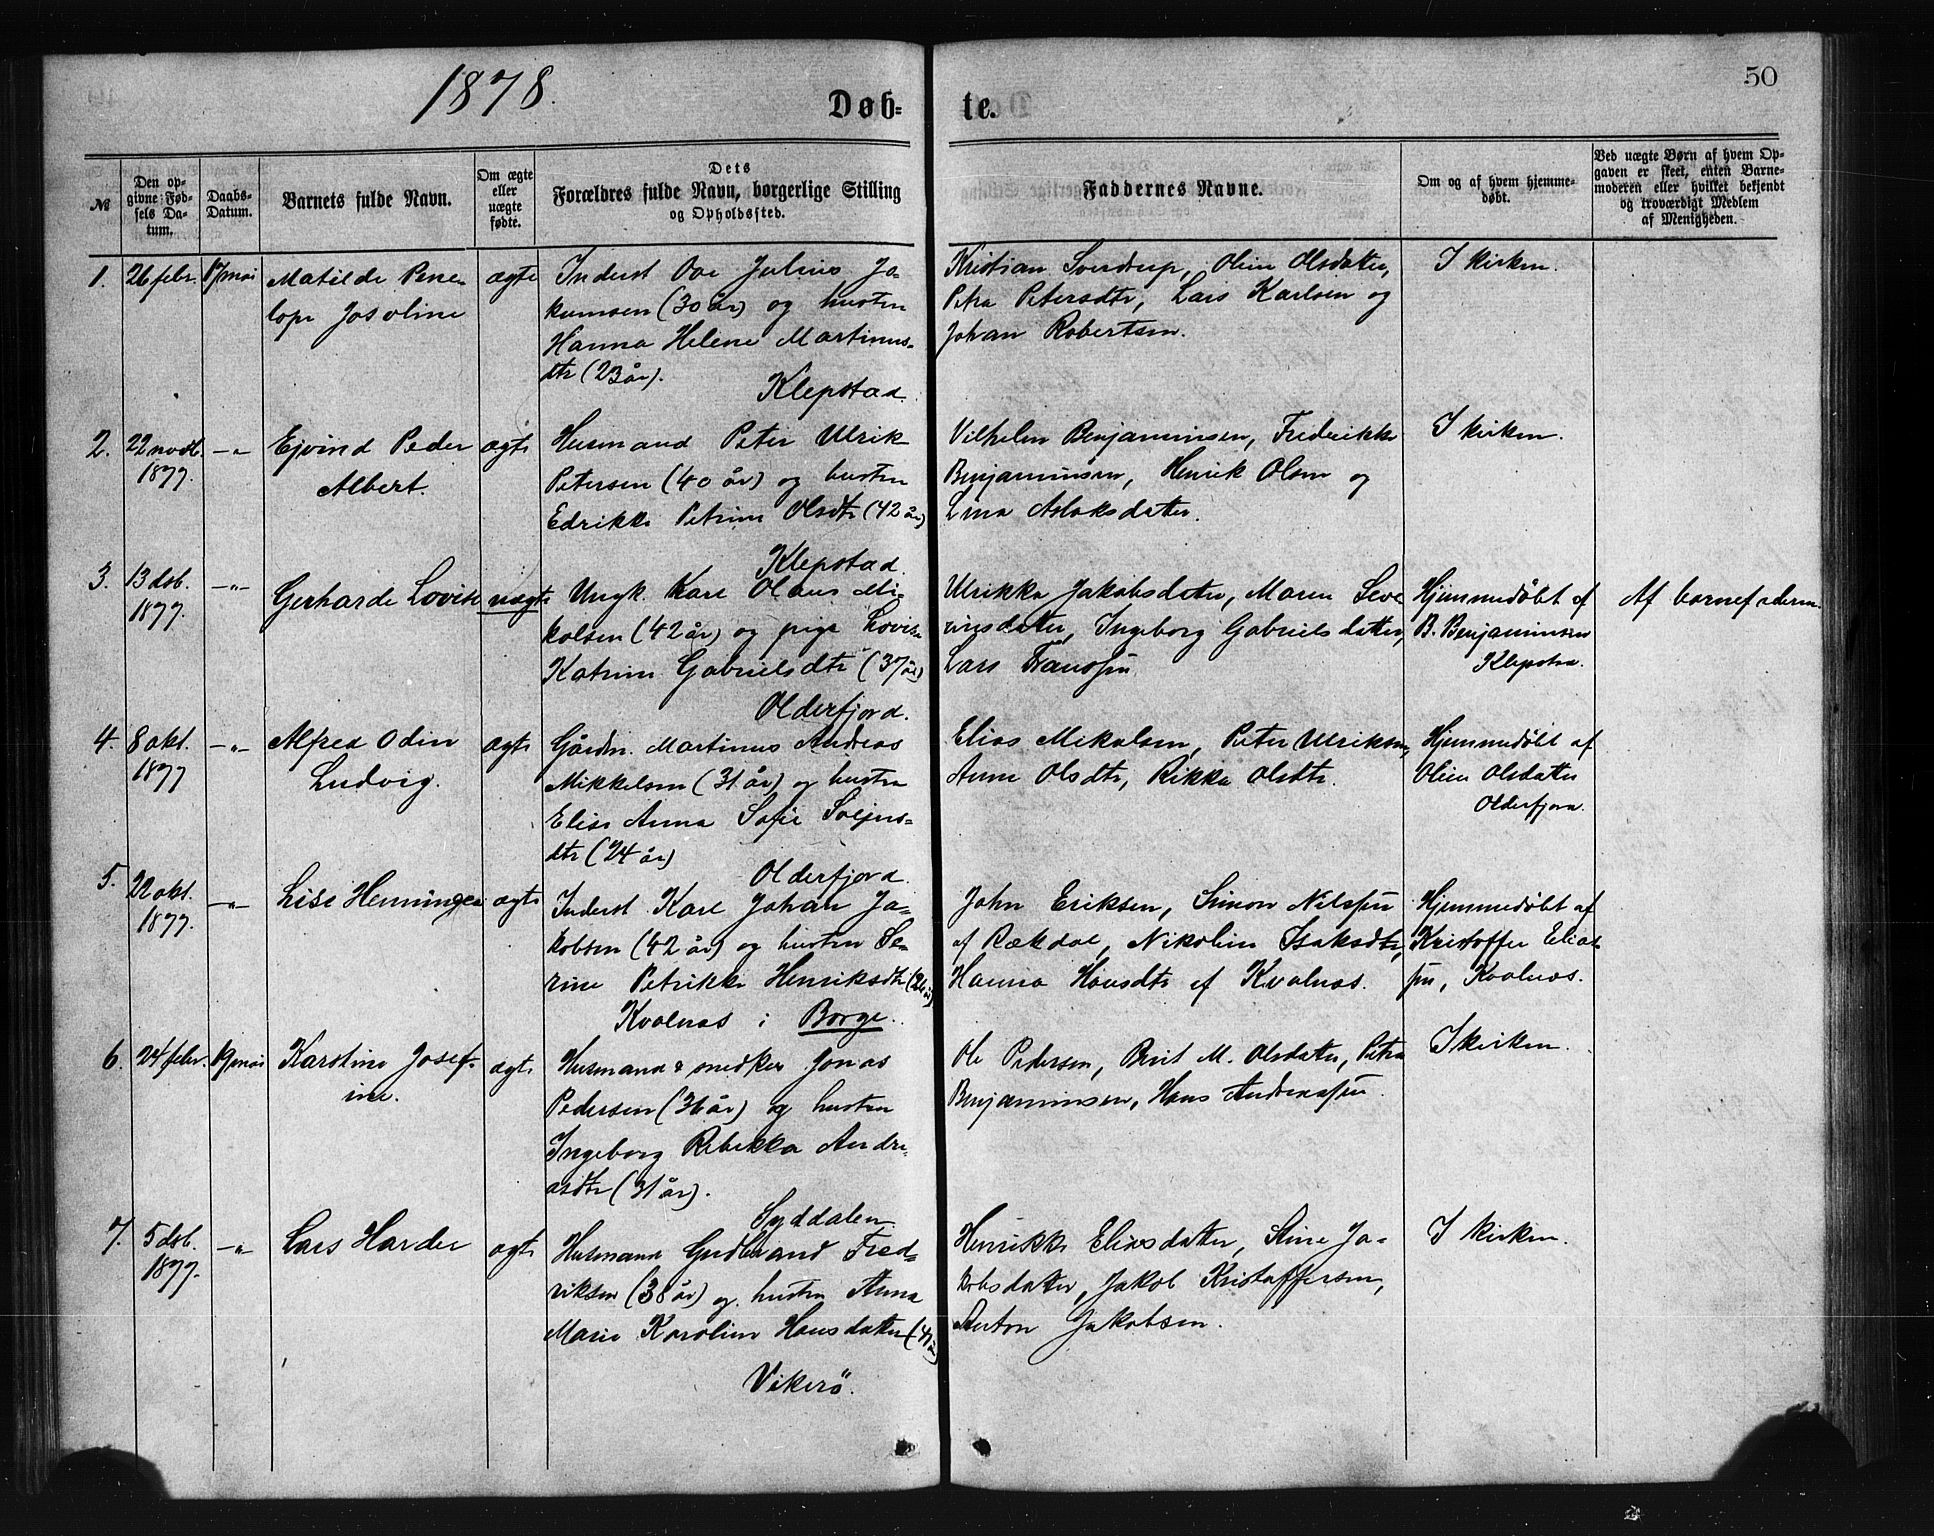 1878.
50
Døb-
te.
№
Den op-
givne Fød-
sels Da-
tum.
Daabs-
Datum.
Barnets fulde Navn.
Om ægte
eller
uægte
fødte.
Dets
Forældres fulde Navn, borgerlige Stilling
og Opholdssted.
Faddernes Navne.
Om og af hvem hjemme-
døbt.
Ved uægte Børn af hvem Op-
gaven er skeet, enten Barne-
moderen eller hvilket bekjendt
og troværdigt Medlem
af Menigheden.
1. 26 febr. 17 mai
Matilde Pene-
lope Josoline
ægte
Inderst Ove Julius Ja-
kumsen (30 år) og hustru
Hanna Helene Martinus-
dtr (23 år).
Klepstad.
Kristian Sverdrup, Oline Olsdatter,
Petra Petersdtr, Lars Karlsen og
Johan Robertsen.
I kirken.
2. 22 novbr.
1877.
—"—
Ejvind Peder
Albert.
ægte
Husmand Peter Ulrik
Petersen (40 år) og hustru
Edrikke Petrine Olsdtr (42 år)
Klepstad.
Vilhelm Benjaminsen, Fredrikke
Benjaminsen, Henrik Olsen og
Lina Aslaksdatter.
I kirken.
3. 13 dcb.
1877.
—"—
Gerharde Lovise
uægte
Ungk. Karl Olaus Mi-
kalsen (42 år) og pige Lovise
Katrine Gabrielsdtr (37 år)
Olderfjord.
Ulrikke Jakobsdatter, Maren Seve-
rinsdatter, Ingeborg Gabrielsdatter,
Lars Franssen
Hjemmedøbt af
B. Benjaminsen
Klepstad.
Af barnefaderen.
4. 8 okt.
1877
—"—
Alfred Odin
Ludvig.
ægte
Gårdm. Martinus Andreas
Mikkelsen (31 år) og hustru
Elise Anna Sofie
dtr (24 år)
Olderfjord.
Elias Mikalsen, Peter Ulriksen,
Anne Olsdtr, Rikka Olsdtr.
Hjemmedøbt af
Oline Olsdatter
Olderfjord.
5. 22 okt.
1877.
—"—
Lise Henninge
ægte
Inderst Karl Johan Ja-
kobsen (42 år) og hustru Se-
rine Petrikke Henriksdtr
Kvalnæs i Borge.
John Eriksen, Simon Nilssen
af Rækdal, Nikoline Isaksdtr,
Hanna Hansdtr af Kvalnæs.
Hjemmedøbt af
Kristoffer Elias-
sen, Kvalnæs.
6. 24 febr. 19 mai
Karstine Josef-
ine.
ægte
Husmand & snedker Jonas
Pedersen (36 år) og hustru
Ingeborg Rebekka Andre-
asdtr (31 år).
Syddalen
Ole Pedersen, Brit M. Olsdatter, Petra
Benjaminsen, Hans Andreassen.
I kirken.
7. 5 dcb.
1877.
—"—
Lars Harder
ægte
Husmand Gudbrand Fred-
riksen (38 år) og hustru Anna
Marie Karoline Hansdatter
Vikerø.
Henrikke Eliasdatter, Stine Ja-
kobsdatter, Jakob Kristoffersen,
Anton Jakobsen.
I kirken.